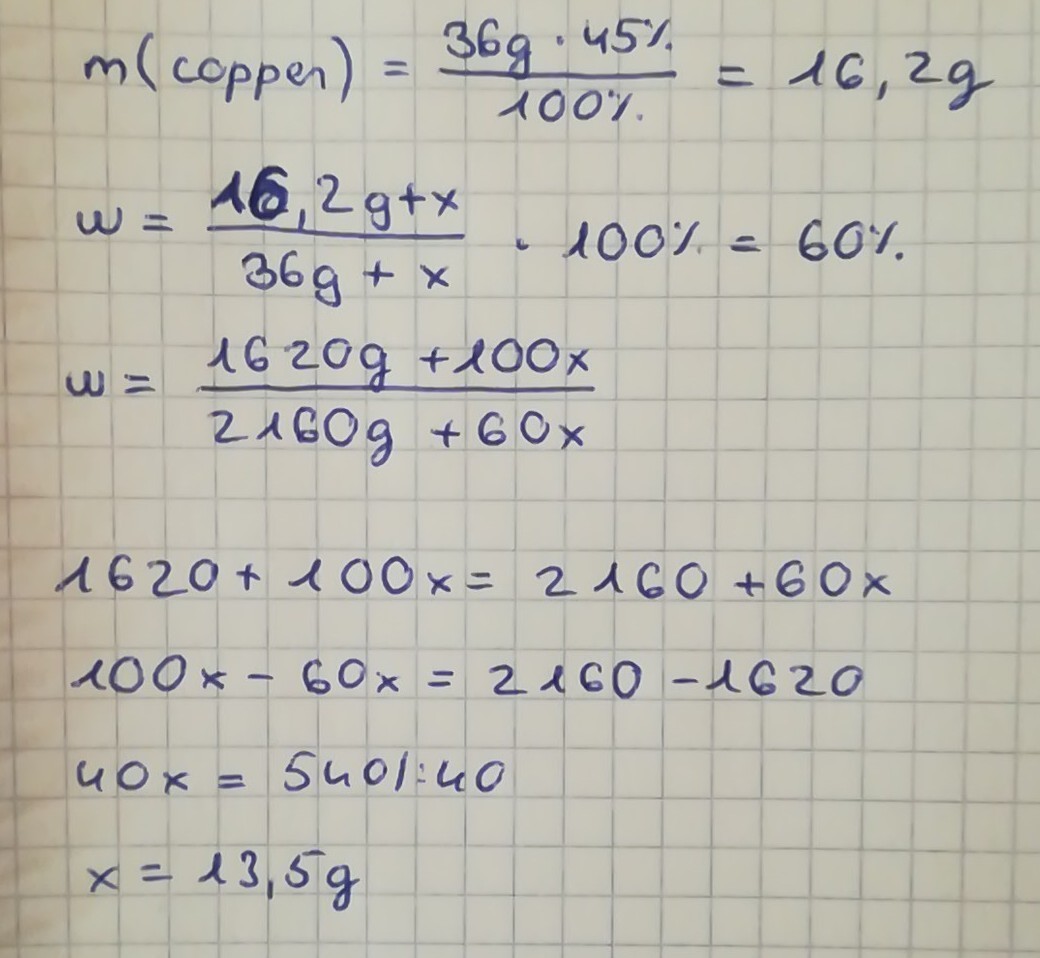 m(copper) = 36g · 45% / 100% = 16,2g
w = 16,2g+x / 36g + x · 100% = 60%
w = 1620g +100x / 2160g +60x
1620+ 100x= 2160 +60x
100x - 60x = 2160 -1620
40x = 540/:40
x = 13,5g